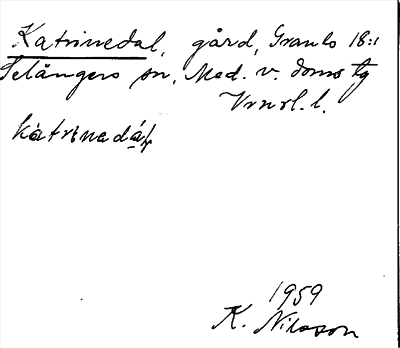 Katrinedal, gård, Granlo 18:1
Selångers sn, Med. v. doms tg
Vrnsl. l.
kàtrinedáɫ
1959
K. Nilsson